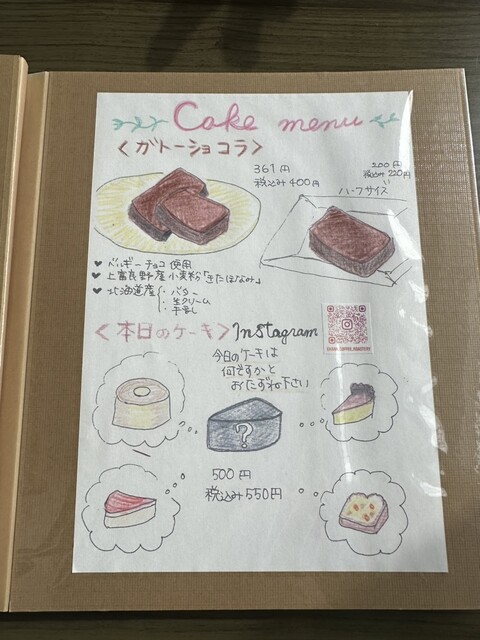 Cake menu
<ガトーショコラ>
361円
税込み400円
200円
税込み220円
ハーフサイズ
♥ ベルギーチョコ使用
♥ 上富良野産小麦粉「きたほなみ」
♥ 北海道産 ・バター
・生クリーム
・牛乳
<本日のケーキ> Instagram
今日のケーキは
何ですかと
おたずね下さい
?
500円
税込み550円